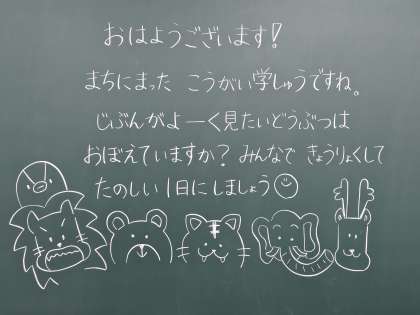 おはようございます!
まちにまった こうがい学しゅうですね。
じぶんがよーく見たいどうぶつは
おぼえていますか? みんなで きょうりょくして
たのしい1日にしましょう